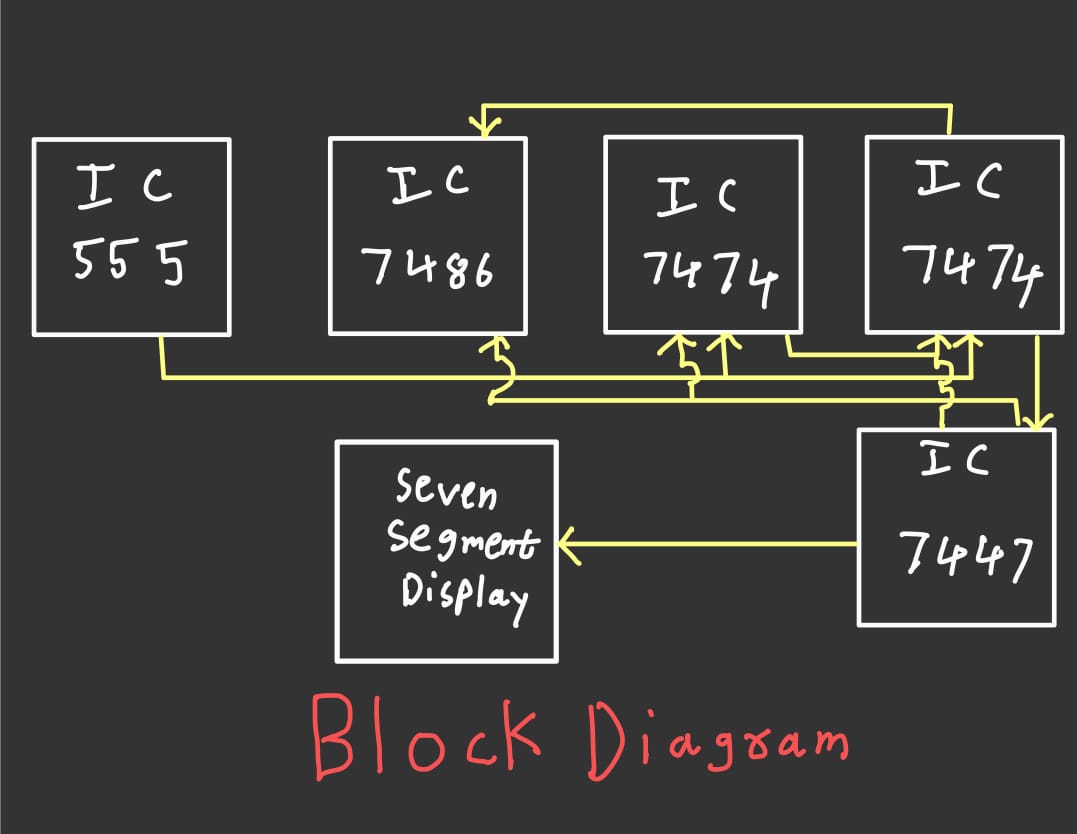 IC
555
IC
7486
IC
7474
IC
7474
IC
7447
Seven
Segment
Display
Block Diagram